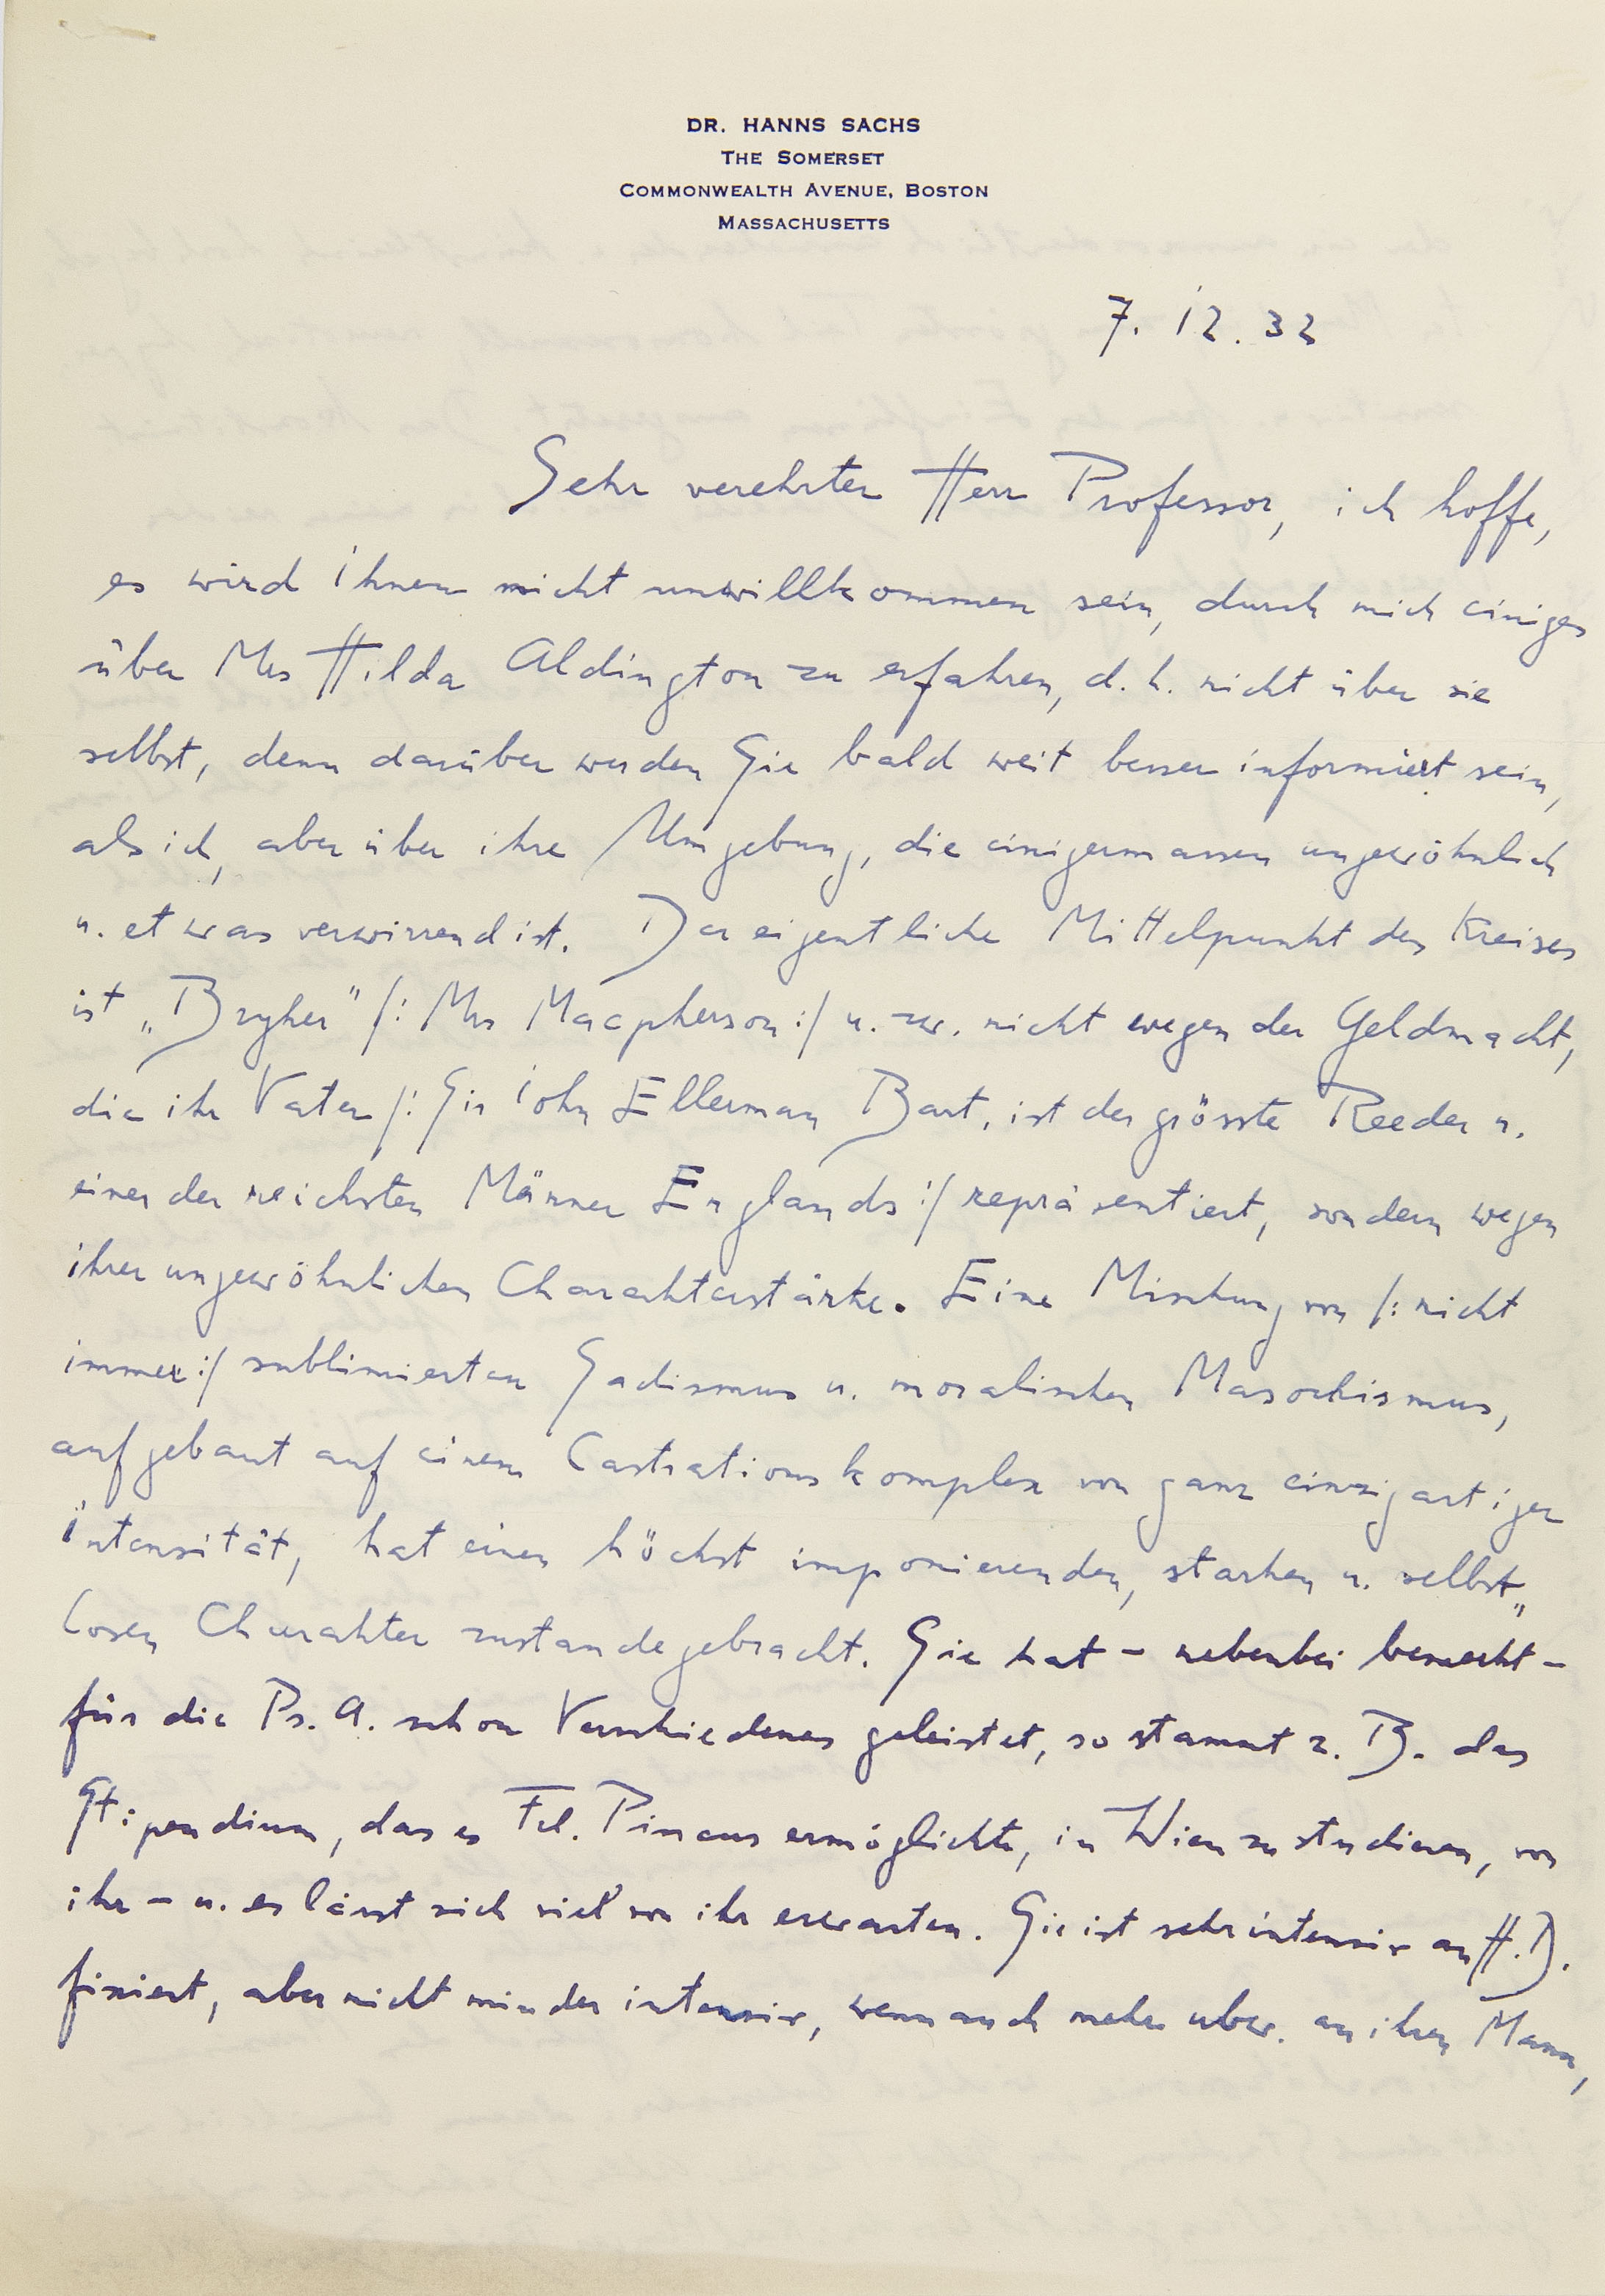 DR. HANNS SACHS
THE SOMERSET
COMMONWEALTH AVENUE, BOSTON
MASSACHUSETTS
7. 12. 32
Sehr verehrter Herr Professor, ich hoffe,
es wird ihnen nicht unwillkommen sein, durch mich einiges
über Mrs Hilda Aldington zu erfahren, d. h. nicht über sie
selbst, denn darüber werden Sie bald weit besser informiert sein,
als ich, aber über ihre Umgebung, die einigermassen ungewöhnlich
u. etwas verwirrend ist. Der eigentliche Mittelpunkt des Kreises
ist „Bryher" /: Mrs Macpherson :/ u. zw. nicht wegen der Geldmacht,
die ihr Vater /: Sir John Ellerman Bart, ist der grösste Reeder u.
einer der reichsten Männer Englands :/ repräsentiert, sondern wegen
ihrer ungewöhnlichen Charakterstärke. Eine Mischung von /: nicht
immer :/ sublimierten Sadismus u. moralischen Masochismus,
aufgebaut auf einem Castrationskomplex von ganz einzigartiger
intensität, hat einen höchst imponierenden, starken u. selbst„
losen Charakter zustande gebracht. Sie hat – nebenbei bemerkt –
für die Ps. A. schon Verschiedenes geleistet, so stammt z. B. das
Stipendium, das es Frl. Pincus ermöglichte, in Wien zu studieren, von
ihr – u. es lässt sich viel von ihr erwarten. Sie ist sehr intensiv an H. D.
fixiert, aber nicht minder intensiv, wenn auch mehr ubw. an ihren Mann,